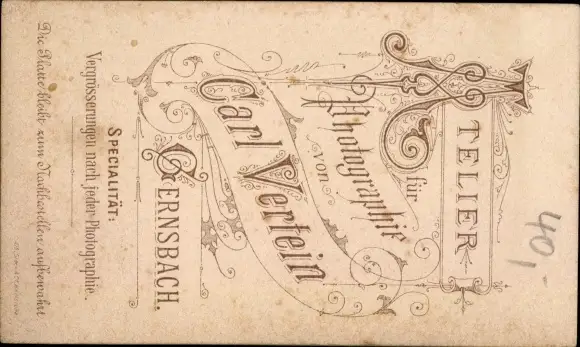 ATELIER
für
Photographie
von
Carl Vertein
GERNSBACH.
SPECIALITÄT:
Vergrösserungen nach jeder Photographie.
Die Platte bleibt zum Nachbestellen aufbewahrt
40,-